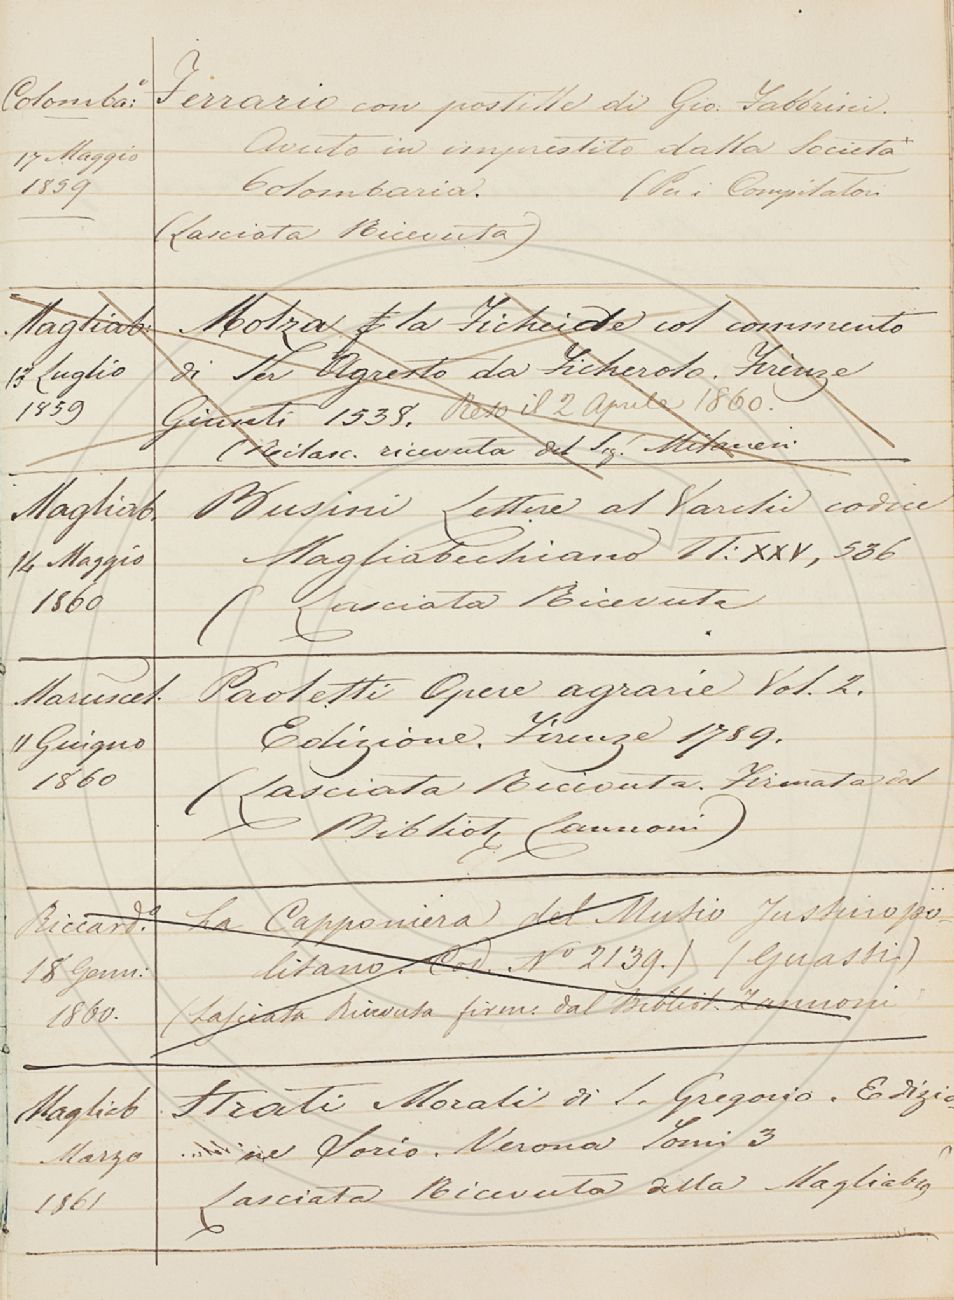 Colomba:ª Ferrario con postille di Gio. Fabbrini.
17 Maggio Avuto in imprestito dalla Società
1859 Colombaria. (Per i Compilatori
(Lasciata Ricevuta)
Magliab: Molza F la Ficheide col commento
13 Luglio di Ser Agresto da Ficherolo. Firenze
1859 Giunti 1538. Reso il 2 Aprile 1860.
(Rilasc. ricevuta del Sig. Milanesi
Magliab. Busini Lettere al Varchi codice
14 Maggio Magliabechiano Tt: XXV, 536
1860 ( Lasciata Ricevuta
Marucel. Paoletti Opere agrarie Vol. 2.
11 Giugno Edizione. Firenze 1789.
1860 (Lasciata Ricevuta. Firmata dal
Bibliot Zannoni)
Riccard.ª La Capponiera del Mutio Justinopo-
18 Genn: litano. Cod. Nº 2139.) (Guasti.)
1860. (Lasciata Ricevuta firm: dal Bibliot. Zannoni
Magliab Strati Morali di S. Gregorio. Edizio-
Marzo ne Sorio. Verona Tomi 3
1861 Lasciata Ricevuta alla Magliab